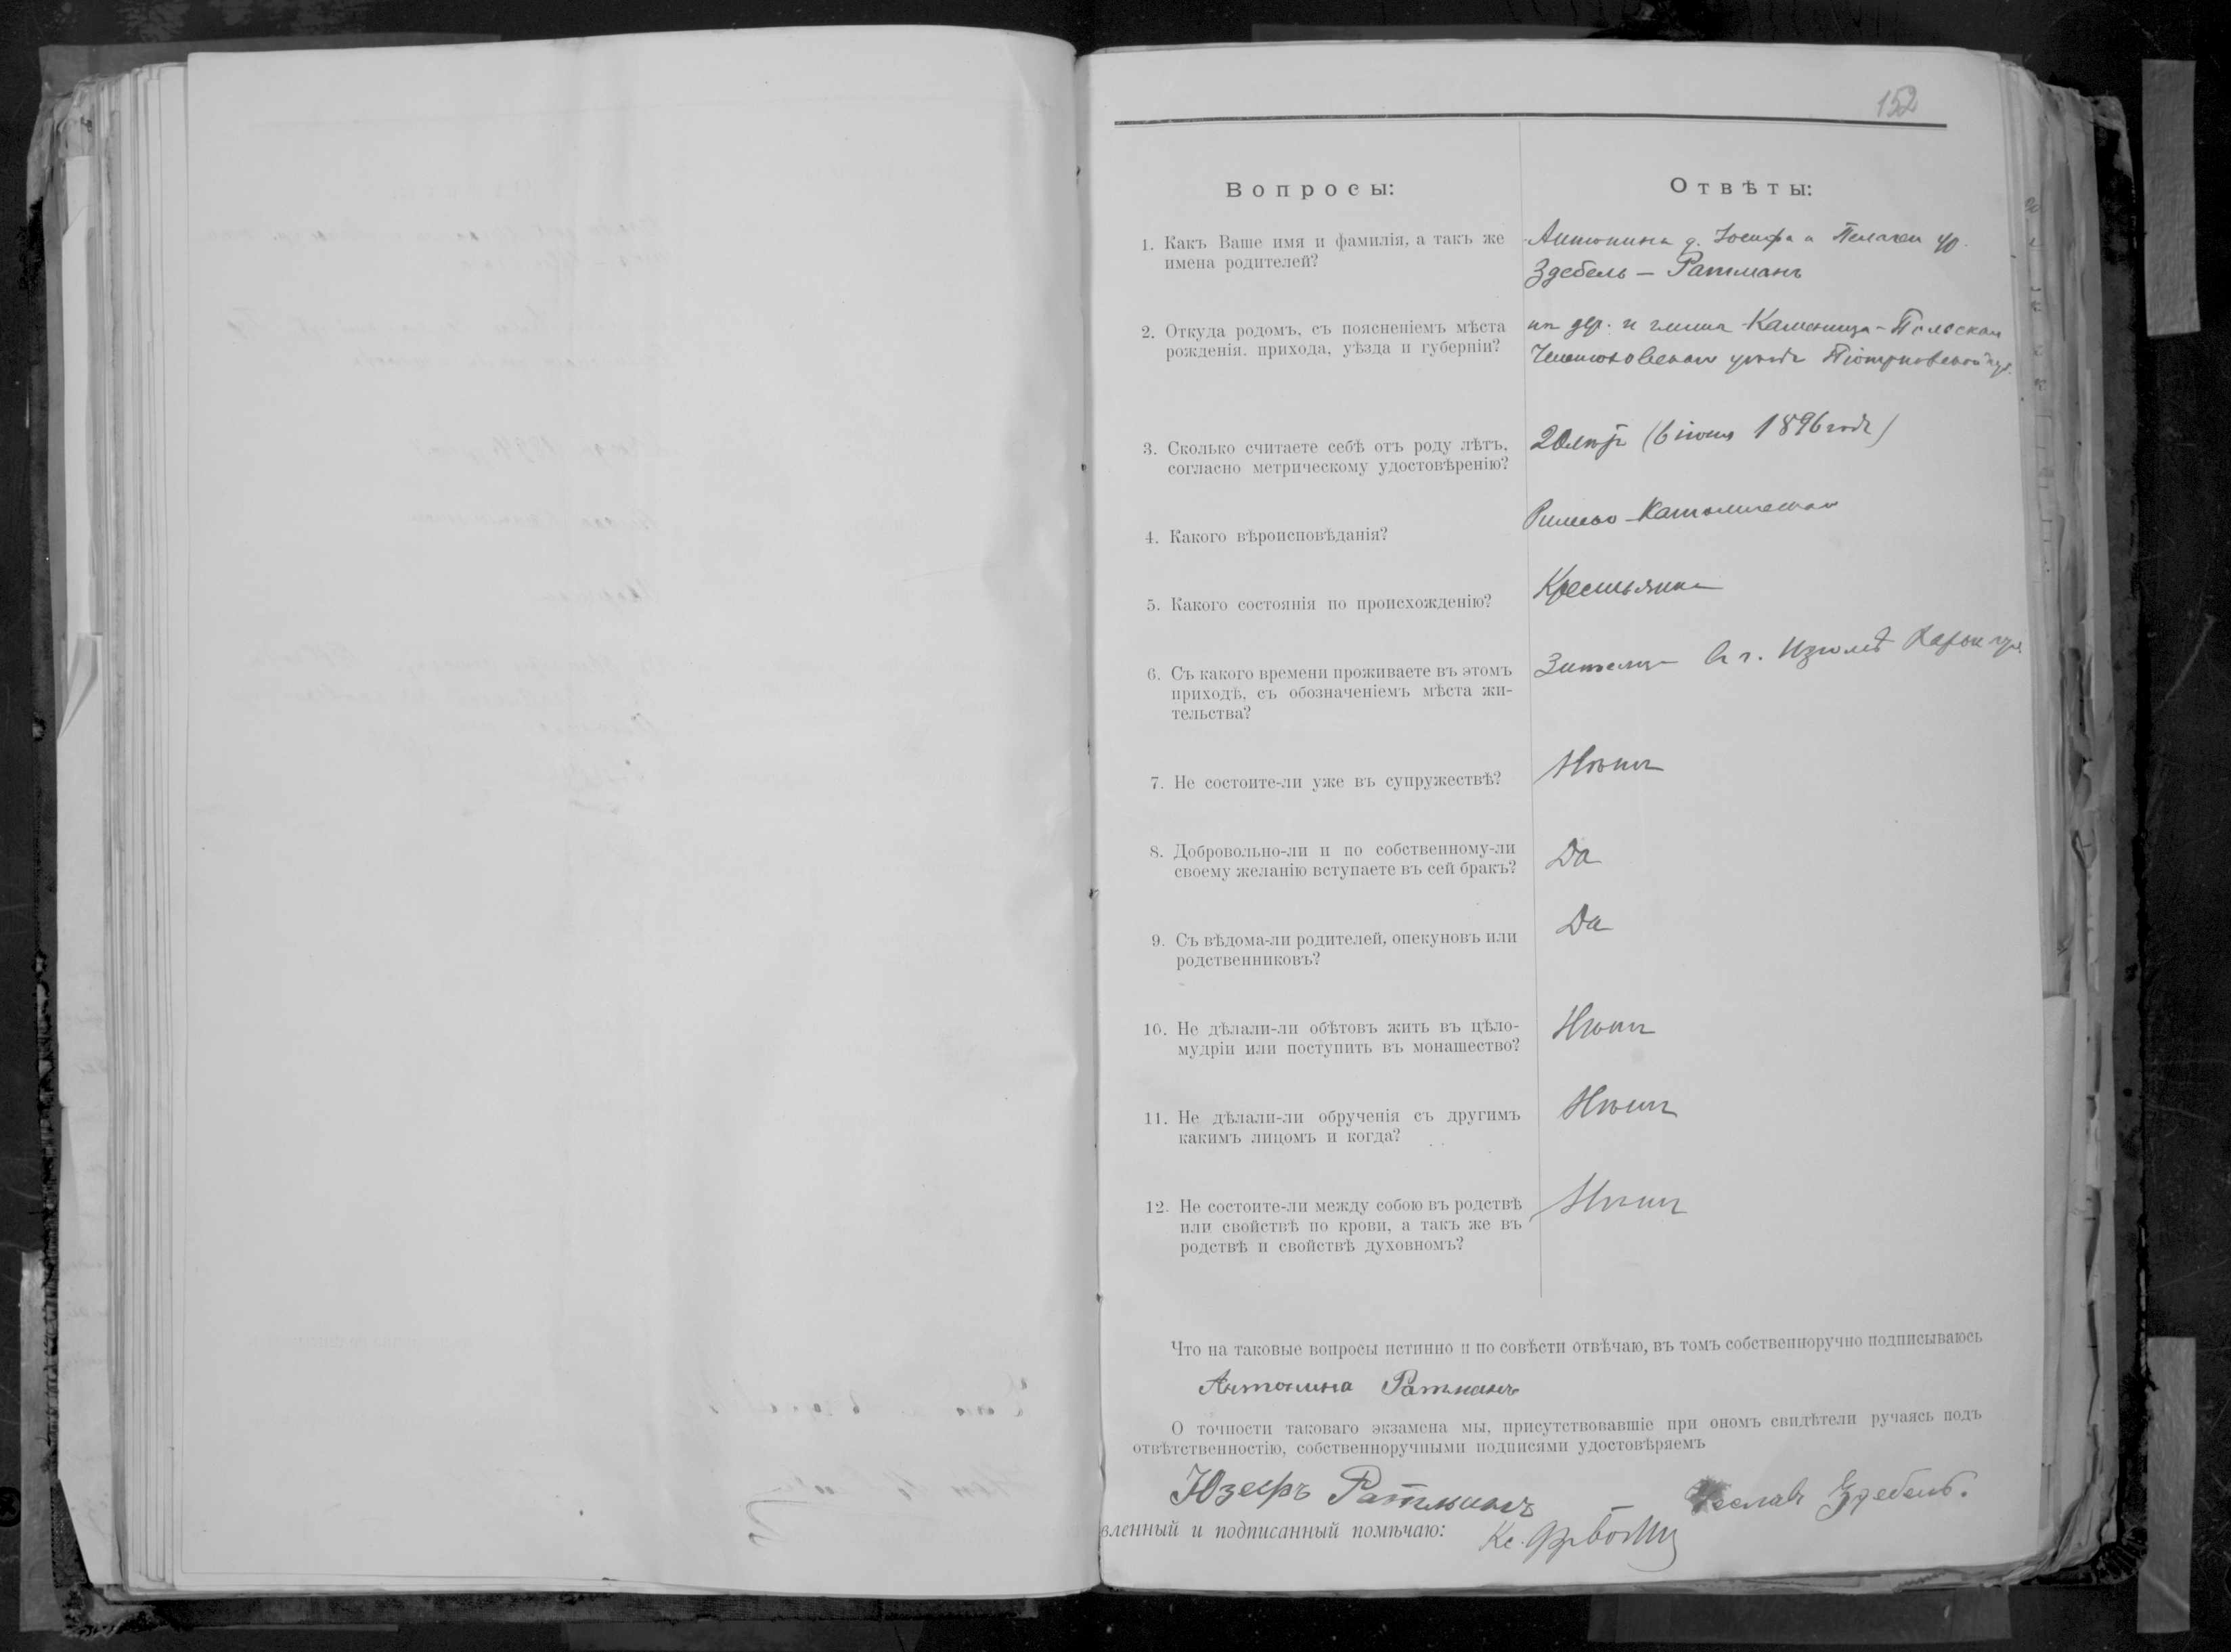 152
Вопросы:
Отвѣты:
1. Какъ Ваше имя и фамилія, а такъ же
имена родителей?
Антонина д. Іосифа и Пелагеи ур.
Здебель — Ратманъ
2. Откуда родомъ, съ поясненіемъ мѣста
рожденія. прихода, уѣзда и губерніи?
дер. и гмина Каменица-Польская
Ченстоховскаго уѣзда Піотрковской губ.
3. Сколько считаете себѣ отъ роду лѣтъ,
согласно метрическому удостовѣренію?
20 лѣтъ (6 іюня 1896 года)
4. Какого вѣроисповѣданія?
Римско-Католическая
5. Какого состоянія по происхожденію?
Крестьянка
6. Съ какого времени проживаете въ этомъ
приходѣ, съ обозначеніемъ мѣста жи-
тельства?
въ г.
7. Не состоите-ли уже въ супружествѣ?
Нѣтъ
8. Добровольно-ли и по собственному-ли
своему желанію вступаете въ сей бракъ?
Да
9. Съ вѣдома-ли родителей, опекуновъ или
родственниковъ?
Да
10. Не дѣлали-ли обѣтовъ жить въ цѣло-
мудріи или поступить въ монашество?
Нѣтъ
11. Не дѣлали-ли обрученія съ другимъ
какимъ лицомъ и когда?
Нѣтъ
12. Не состоите-ли между собою въ родствѣ
или свойствѣ по крови, а такъ же въ
родствѣ и свойствѣ духовномъ?
Нѣтъ
Что на таковые вопросы истинно и по совѣсти отвѣчаю, въ томъ собственноручно подписываюсь
Антонина Ратманъ
О точности таковаго экзамена мы, присутствовавшіе при ономъ свидѣтели ручаясь подъ
отвѣтственностію, собственноручными подписями удостовѣряемъ
Юзефъ Ратманъ
Чеславъ Здебель.
вленный и подписанный помѣчаю:
Кс.